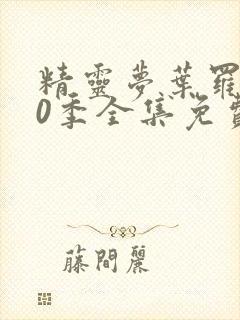 精靈夢葉羅
0季全集免費
藤間麗